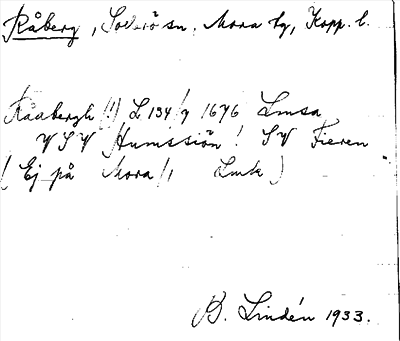 Råberg, Sollerö sn, Mora tg, Kopp. l.
Råabergh (!) L 134/7 1676 Lmsa
VSV Humssiön! SV Fieren
(Ej på Mora /1 Lmk)
B. Lindén 1933.